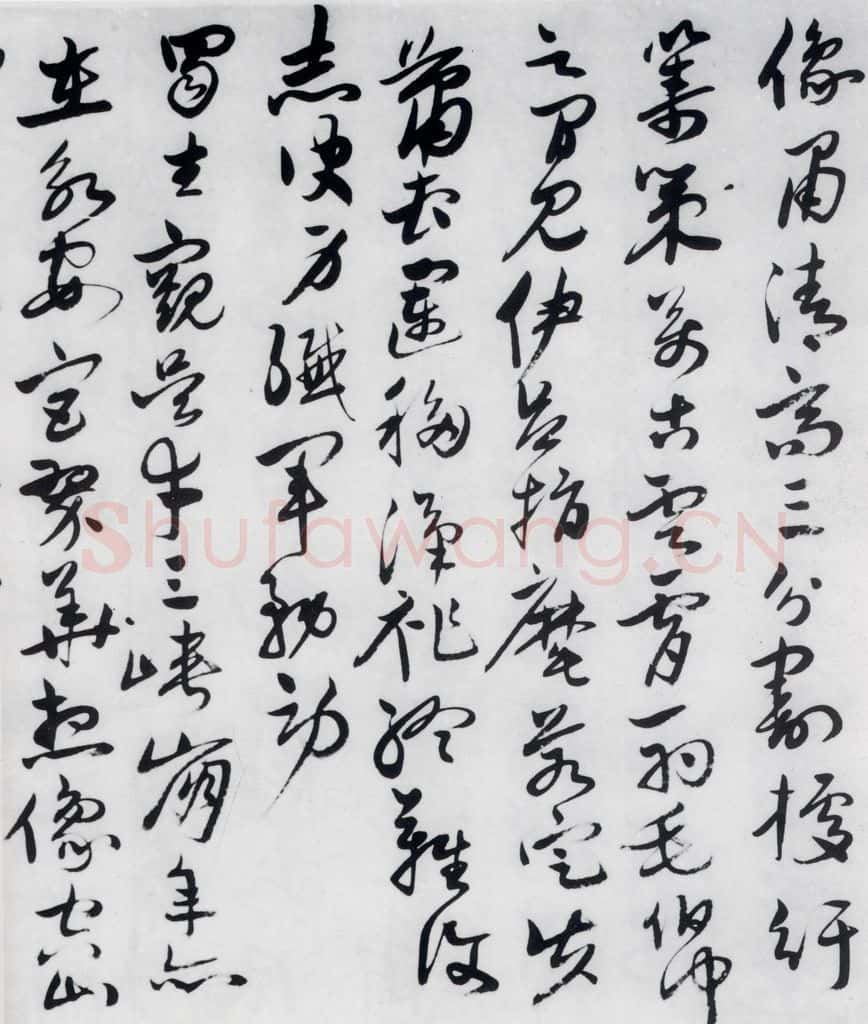 像肅清高三分割據紆
籌策萬古雲霄一羽毛伯仲
之間見伊呂指麾若定失
蕭曹運移漢祚終難復
志決身殲軍務勞
蜀主窺吳幸三峽崩年亦
在永安宮翠華想像空山
Shufawang.CN